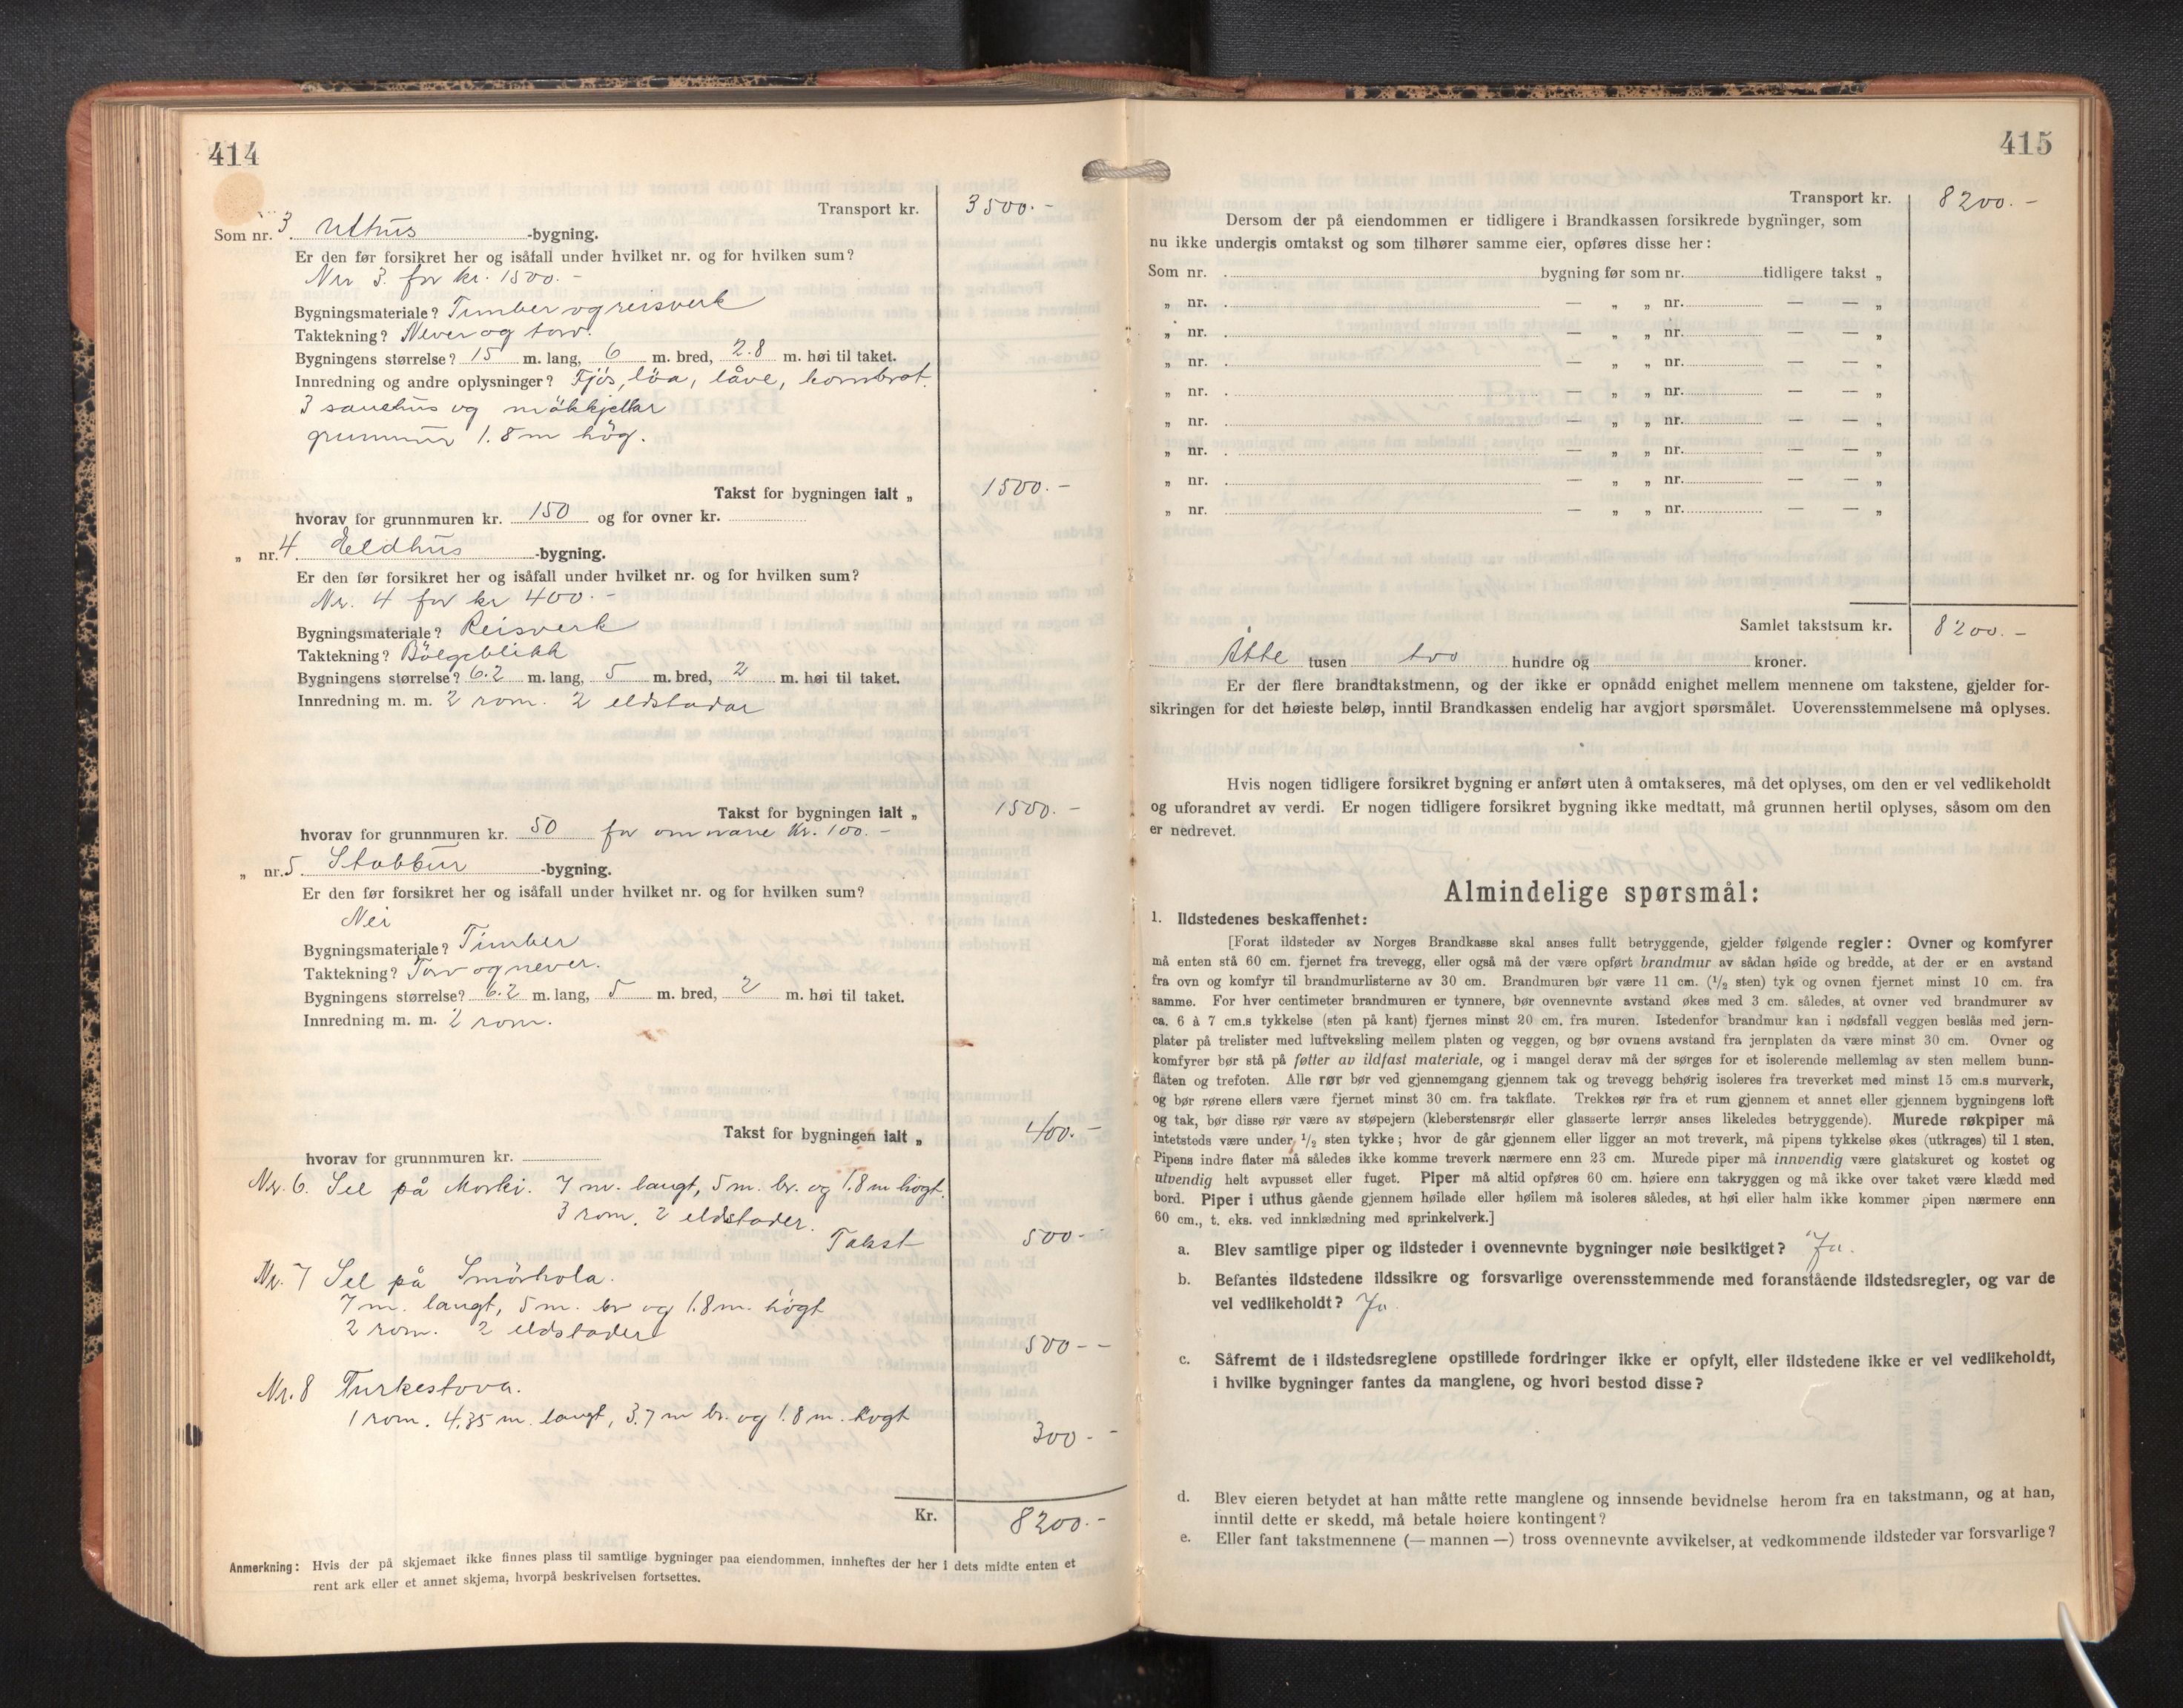 414
Transport kr. 3500.-
Som nr. 3. Uthus -bygning.
Er den før forsikret her og isåfall under hvilket nr. og for hvilken sum?
Nr 3. for kr. 1500.-
Bygningsmateriale? Timber og reisverk
Taktekning? Never og torv.
Bygningens størrelse? 15 m. lang, 6 m. bred, 2.8 m. høi til taket.
Innredning og andre oplysninger? Fjös, löa, låve, kornbrot.
3 sauehus og mökkjellar
grunnmur 1.8 m hög.
Takst for bygningen ialt „ 1500.-
hvorav for grunnmuren kr. 150 og for ovner kr.
„ nr. 4. Eldhus -bygning.
Er den før forsikret her og isåfall under hvilket nr. og for hvilken sum?
Nr. 4 for kr 400.-
Bygningsmateriale? Reisverk
Taktekning? Bölgeblikk
Bygningens størrelse? 6.2 m. lang, 5 m. bred, 2 m. høi til taket.
Innredning m. m. 2 rom. 2 eldstadar
Takst for bygningen ialt „ 1500.-
hvorav for grunnmuren kr. 50 for omnane kr. 100.-
„ nr. 5. Stabbur -bygning.
Er den før forsikret her og isåfall under hvilket nr. og for hvilken sum?
Nei
Bygningsmateriale? Timber
Taktekning? Torv og never.
Bygningens størrelse? 6.2 m. lang, 5 m. bred, 2 m. høi til taket.
Innredning m. m. 2 rom.
Takst for bygningen ialt „ 400.-
hvorav for grunnmuren kr.
Nr. 6. Sel på Morki. 7 m. langt, 5 m. br. og 1.8 m högt.
3 rom. 2 eldstader.
Takst 500-
Nr. 7 Sel på Smörhola.
7 m. langt, 5 m. br og 1.8 m. högt
2 rom. 2 eldstader 500--
Nr. 8 Turkestova.
1 rom. 4.35 m. langt, 3.7 m br. og 1.8 m. högt 300--
Kr. 8200.-
Anmerkning: Hvis der på skjemaet ikke finnes plass til samtlige bygninger paa eiendommen, innheftes der her i dets midte enten et
rent ark eller et annet skjema, hvorpå beskrivelsen fortsettes.
415
Transport kr. 8200.-
Dersom der på eiendommen er tidligere i Brandkassen forsikrede bygninger, som
nu ikke undergis omtakst og som tilhører samme eier, opføres disse her:
Som nr. bygning før som nr. tidligere takst „
„ nr. — „ „ nr. — — „
„ nr. — „ „ nr. — — „
„ nr. — „ „ nr. — — „
„ nr. — „ „ nr. — — „
„ nr. — „ „ nr. — — „
„ nr. — „ „ nr. — — „
„ nr. — „ „ nr. — — „
„ nr. — „ „ nr. — — „
Samlet takstsum kr. 8200.-
Åtte tusen tvo hundre og kroner.
Er der flere brandtakstmenn, og der ikke er opnådd enighet mellem mennene om takstene, gjelder for-
sikringen for det høieste beløp, inntil Brandkassen endelig har avgjort spørsmålet. Uoverensstemmelsene må oplyses.
Hvis nogen tidligere forsikret bygning er anført uten å omtakseres, må det oplyses, om den er vel vedlikeholdt
og uforandret av verdi. Er nogen tidligere forsikret bygning ikke medtatt, må grunnen hertil oplyses, såsom om den
er nedrevet.
Almindelige spørsmål:
1. Ildstedenes beskaffenhet:
[Forat ildsteder av Norges Brandkasse skal anses fullt betryggende, gjelder følgende regler: Ovner og komfyrer
må enten stå 60 cm. fjernet fra trevegg, eller også må der være opført brandmur av sådan høide og bredde, at der er en avstand
fra ovn og komfyr til brandmurlisterne av 30 cm. Brandmuren bør være 11 cm. (1/2 sten) tyk og ovnen fjernet minst 10 cm. fra
samme. For hver centimeter brandmuren er tynnere, bør ovennevnte avstand økes med 3 cm. således, at ovner ved brandmurer av
ca. 6 à 7 cm.s tykkelse (sten på kant) fjernes minst 20 cm. fra muren. Istedenfor brandmur kan i nødsfall veggen beslås med jern-
plater på trelister med luftveksling mellem platen og veggen, og bør ovnens avstand fra jernplaten da være minst 30 cm. Ovner og
komfyrer bør stå på føtter av ildfast materiale, og i mangel derav må der sørges for et isolerende mellemlag av sten mellem bunn-
flaten og trefoten. Alle rør bør ved gjennemgang gjennem tak og trevegg behørig isoleres fra treverket med minst 15 cm.s murverk,
og bør rørene ellers være fjernet minst 30 cm. fra takflate. Trekkes rør fra et rum gjennem et annet eller gjennem bygningens loft
og tak, bør disse rør være av støpejern (kleberstensrør eller glasserte lerrør anses likeledes betryggende). Murede røkpiper må
intetsteds være under 1/2 sten tykke; hvor de går gjennem eller ligger an mot treverk, må pipens tykkelse økes (utkrages) til 1 sten.
Pipens indre flater må således ikke komme treverk nærmere enn 23 cm. Murede piper må innvendig være glatskuret og kostet og
utvendig helt avpusset eller fuget. Piper må altid opføres 60 cm. høiere enn takryggen og må ikke over taket være klædd med
bord. Piper i uthus gående gjennem høilade eller høilem må isoleres således, at høi eller halm ikke kommer pipen nærmere enn
60 cm., t. eks. ved innklædning med sprinkelverk.]
a. Blev samtlige piper og ildsteder i ovennevnte bygninger nøie besiktiget? Ja.
b. Befantes ildstedene ildssikre og forsvarlige overensstemmende med foranstående ildstedsregler, og var de
vel vedlikeholdt? Ja
c. Såfremt de i ildstedsreglene opstillede fordringer ikke er opfylt, eller ildstedene ikke er vel vedlikeholdt,
i hvilke bygninger fantes da manglene, og hvori bestod disse?
d. Blev eieren betydet at han måtte rette manglene og innsende bevidnelse herom fra en takstmann, og at han,
inntil dette er skedd, må betale høiere kontingent?
e. Eller fant takstmennene (— mannen —) tross ovennevnte avvikelser, at vedkommende ildsteder var forsvarlige?